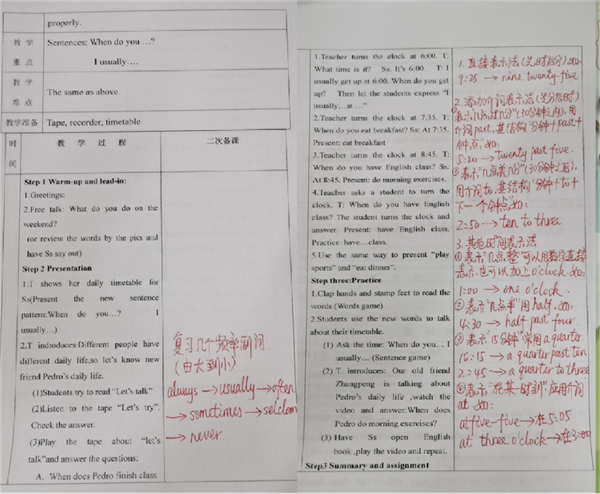 properly.
教 学
重 点
Sentences: When do you …?
I usually….
教 学
难 点
The same as above
教学准备
Tape, recorder, timetable
时
间
教 学 过 程
二次备课
Step 1 Warm-up and lead-in:
1.Greetings:
2.Free talk: What do you do on the
weekend?
(or review the words by the pics and
have Ss say out)
Step 2 Presentation
1.T shows her daily timetable for
Ss(Present the new sentence
pattern.When do you…? I
usually…)
2.T indoduces:Different people have
different daily life,so let's know new
friend Pedro's daily life.
(1)Students try to read "Let's talk"
(2)Listen to the tape "Let's try".
Check the answer.
(3)Play the tape about "let's
talk"and answer the questions:
A. When does Pedro finish class
复习几个频率副词.
(由大到小)
always → usually → often
→ sometimes → seldom
→ never.
1.Teacher turns the clock at 6:00. T:
What time is it? Ss: It's 6:00. T: I
usually get up at 6:00. When do you get
up? Then let the students express "I
usually…at …."
2.Teacher turns the clock at 7:35. T:
When do you eat breakfast? Ss: At 7:35.
Present: eat breakfast
3.Teacher turns the clock at 8:45. T:
When do you have English class? Ss:
At 8:45. Present: do morning exercises.
4.Teacher asks a student to turn the
clock. T: When do you have English
class? The student turns the clock and
answer. Present: have English class.
Practice have…class.
5.Use the same way to present "play
sports" and "eat dinner".
Step three:Practice
1.Clap hands and stamp feet to read the
words (Words game)
2.Students use the new words to talk
about their timetable.
(1) Ask the time: When do you… I
usually…. (Sentence game)
(2) T introduces: Our old friend
Zhangpeng is talking about
Pedro's daily life ,watch the
video and answer:When does
Pedro do morning exercises?
(3) Have Ss open English
book ,play the video and repeat.
Step3 Summary and assignment
1. 直接表示法(先时后分)如:
9:25 → nine twenty-five
2. 添加介词表示法(先分后时)
表示"几点过几分"(30分钟之内),用
介词past,其结构"分钟+past+
钟点",如:
5:20 → twenty past five.
②表示"几点差几分"(30分钟之后),
用介词to,其结构"分钟+to+
下一个钟点",如:
2:50 → ten to three
3. 其他时间表示法
①表示"几点整"可以用数字直接
表示,也可以加上o'clock,如:
1:00 → one o'clock.
②表示"几点半"用half,如:
4:30 → half past four.
③表示"15分钟"常用a quarter
10:15 → a quarter past ten
2:45 → a quarter to three
④表示"在某一时刻"应用介词
at 如:
at five-five → 在5:05
at three o'clock → 在3:00